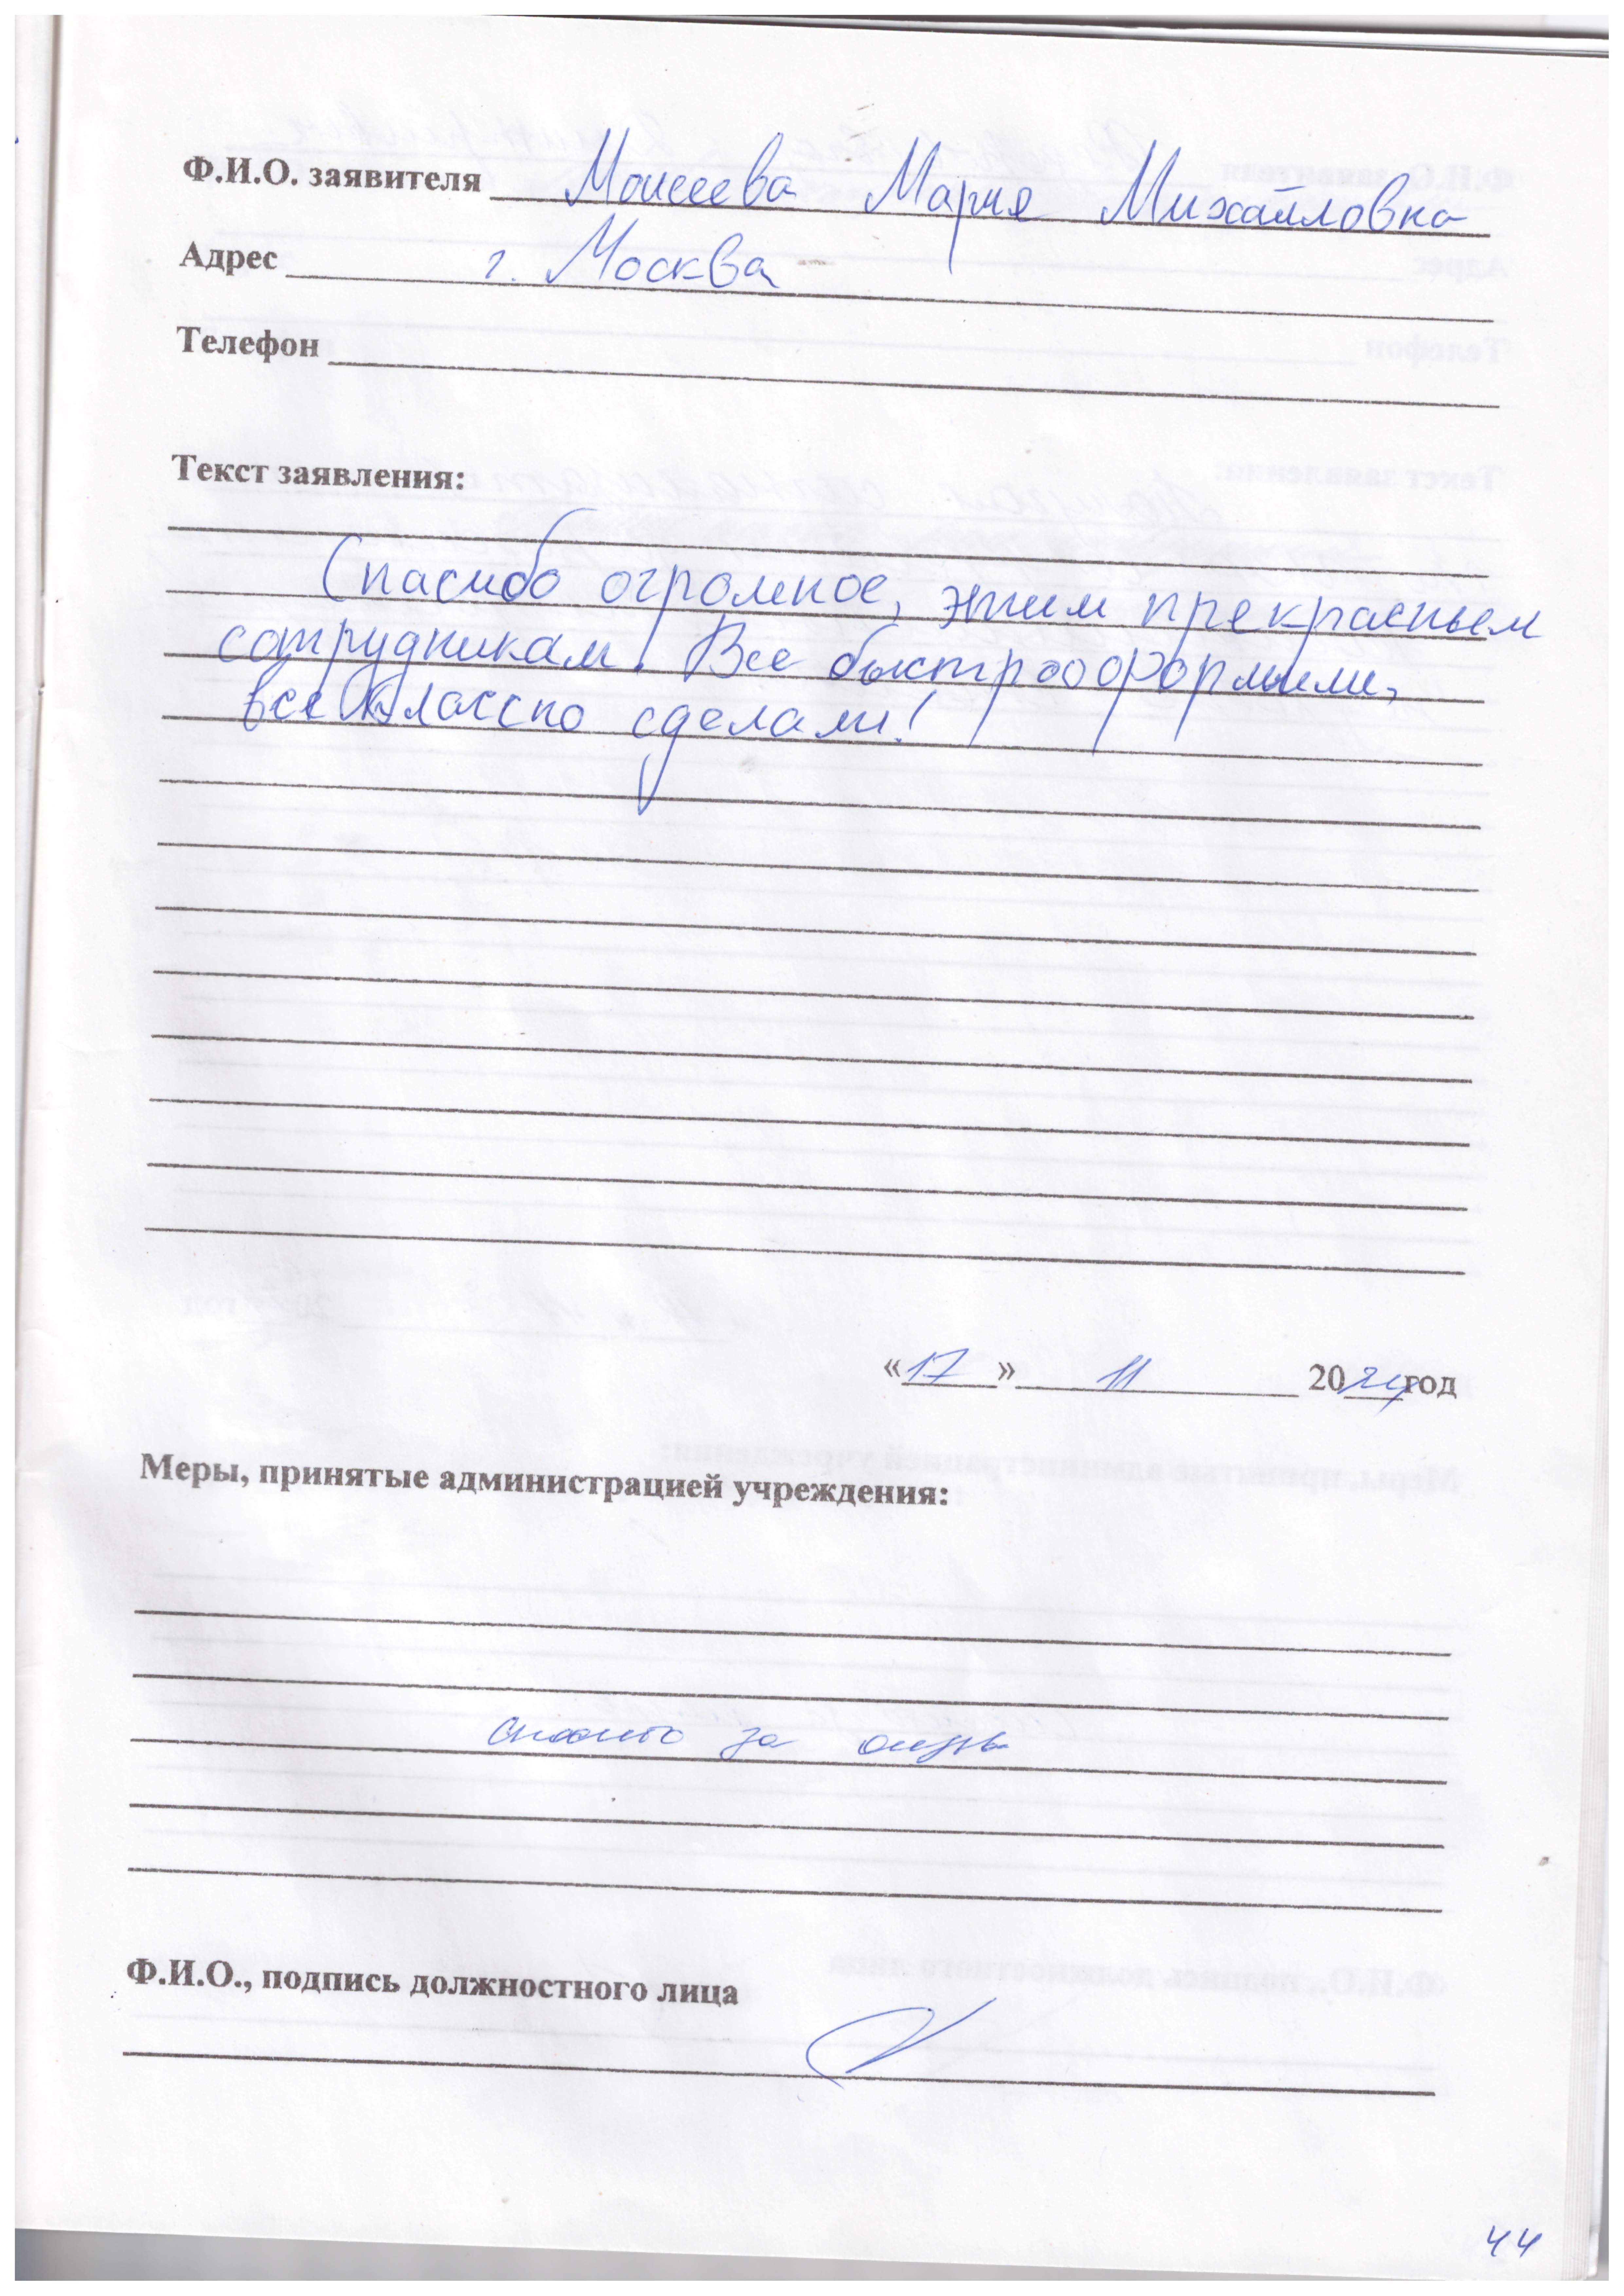 Ф.И.О. заявителя Моисеева Мария Михайловна
Адрес г. Москва
Телефон
Текст заявления:
Спасибо огромное, этим прекрасным
сотрудникам! Все быстро оформили,
все классно сделали!
«17» 11 2024 год
Меры, принятые администрацией учреждения:
спасибо за отзыв
Ф.И.О., подпись должностного лица
44